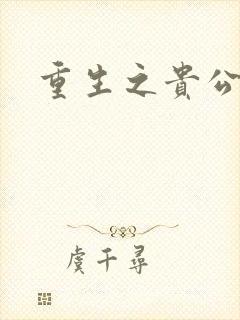 重生之貴公
虞千尋